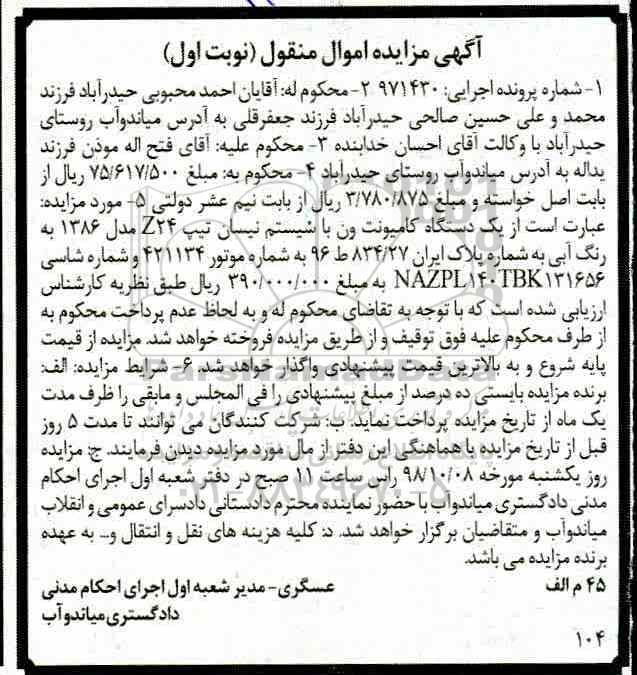 آگهی مزایده اموال منقول (نوبت اول)
۱- شماره پرونده اجرایی: ۹۷۱۴۳۰ ۲- محکوم له: آقایان احمد محبوبی حیدرآباد فرزند
محمد و علی حسین صالحی حیدرآباد فرزند جعفرقلی به آدرس میاندوآب روستای
حیدرآباد با وکالت آقای احسان خدابنده ۳- محکوم علیه: آقای فتح اله موذن فرزند
یداله به آدرس میاندوآب روستای حیدرآباد ۴- محکوم به: مبلغ ۷۵/۶۱۷/۵۰۰ ریال از
بابت اصل خواسته و مبلغ ۳/۷۸۰/۸۷۵ ریال از بابت نیم عشر دولتی ۵- مورد مزایده:
عبارت است از یک دستگاه کامیونت ون با سیستم نیسان تیپ Z۲۴ مدل ۱۳۸۶ به
رنگ آبی به شماره پلاک ایران ۸۳۴/۲۷ ط ۹۶ به شماره موتور ۴۲۱۱۳۴ و شماره شاسی
NAZPL۱۴۰TBK۱۳۱۶۵۶ به مبلغ ۳۹۰/۰۰۰/۰۰۰ ریال طبق نظریه کارشناس
ارزیابی شده است که با توجه به تقاضای محکوم له و به لحاظ عدم پرداخت محکوم به
از طرف محکوم علیه فوق توقیف و از طریق مزایده فروخته خواهد شد. مزایده از قیمت
پایه شروع و به بالاترین قیمت پیشنهادی واگذار خواهد شد. ۶- شرایط مزایده: الف:
برنده مزایده بایستی ده درصد از مبلغ پیشنهادی را فی المجلس و مابقی را ظرف مدت
یک ماه از تاریخ مزایده پرداخت نماید. ب: شرکت کنندگان می توانند تا مدت ۵ روز
قبل از تاریخ مزایده با هماهنگی این دفتر از مال مورد مزایده دیدن فرمایند. ج: مزایده
روز یکشنبه مورخه ۹۸/۱۰/۰۸ راس ساعت ۱۱ صبح در دفتر شعبه اول اجرای احکام
مدنی دادگستری میاندوآب با حضور نماینده محترم دادستانی دادسرای عمومی و انقلاب
میاندوآب و متقاضیان برگزار خواهد شد. د: کلیه هزینه های نقل و انتقال و... به عهده
برنده مزایده می باشد.
۴۵ م الف عسگری- مدیر شعبه اول اجرای احکام مدنی
دادگستری میاندوآب
۱۰۴
ParsNamadData
۰۲۱-۸۸۳۴۹۶۷۰-۵